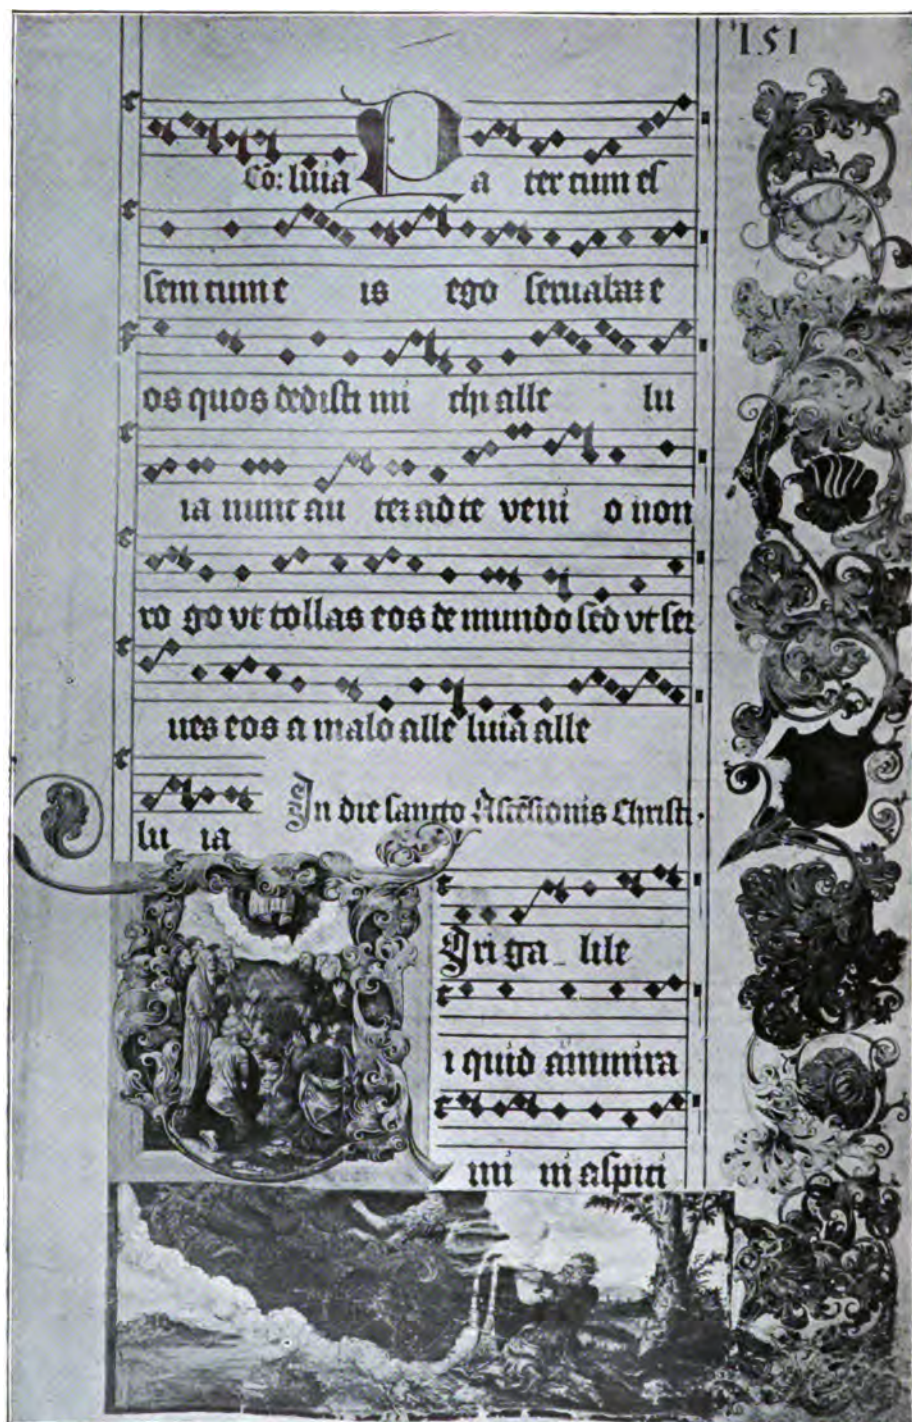 151
Cō: luia Pa ter cum es
sem cum e is ego seruabaz e
os quos dedisti mi chi alle lu
ia nunc au tez ad te veni o non
ro go vt tollas eos de mundo sed vt ser
ues eos a malo alle luia alle
lu ia In die sancto Ascēsionis Christi.
Viri ga lile
i quid ammira
mi ni aspici